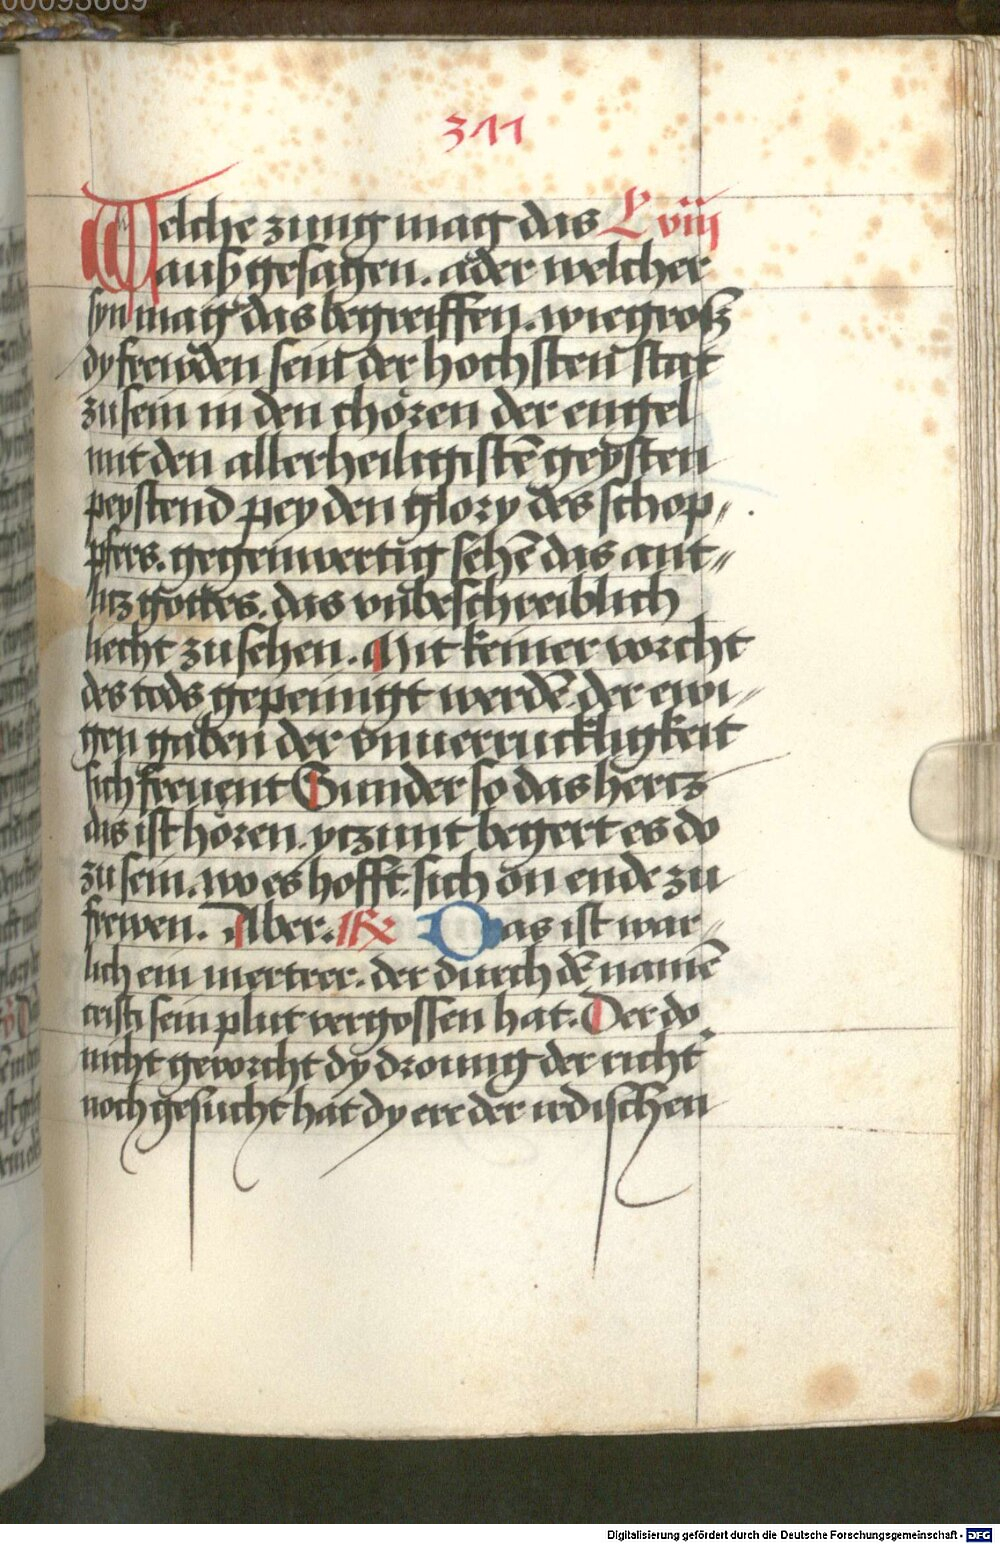 00093669
311
Welche zung mag das L viij
auß gesagen. ader welcher
syn mag das begreiffen. wie groß
dy frewden sein der hochsten stat
zu sein in den chören der engel
mit den allerheiligistē geysten
peystend pey den glory des schop-
pfers. gegenwertig sehē das ant-
litz gottes. das vnbeschreiblich
liecht zu sehen. Mit keiner vorcht
des tods gepeinigt werdē. der ewi-
gen gaben der vnuerruckligkeit
sich frewent Sunder so das hertz
das ist hören. ytzunt begert es do
zu sein. wo es hofft. sich on ende zu
frewen. Aber. R Das ist war-
lich ein mertrer. der durch dē namē
cristi sein plut vergossen hat. Der do
nicht gevorcht dy droung der richt'
noch gesucht hat dy ere der irdischen
Digitalisierung gefördert durch die Deutsche Forschungsgemeinschaft - DFG